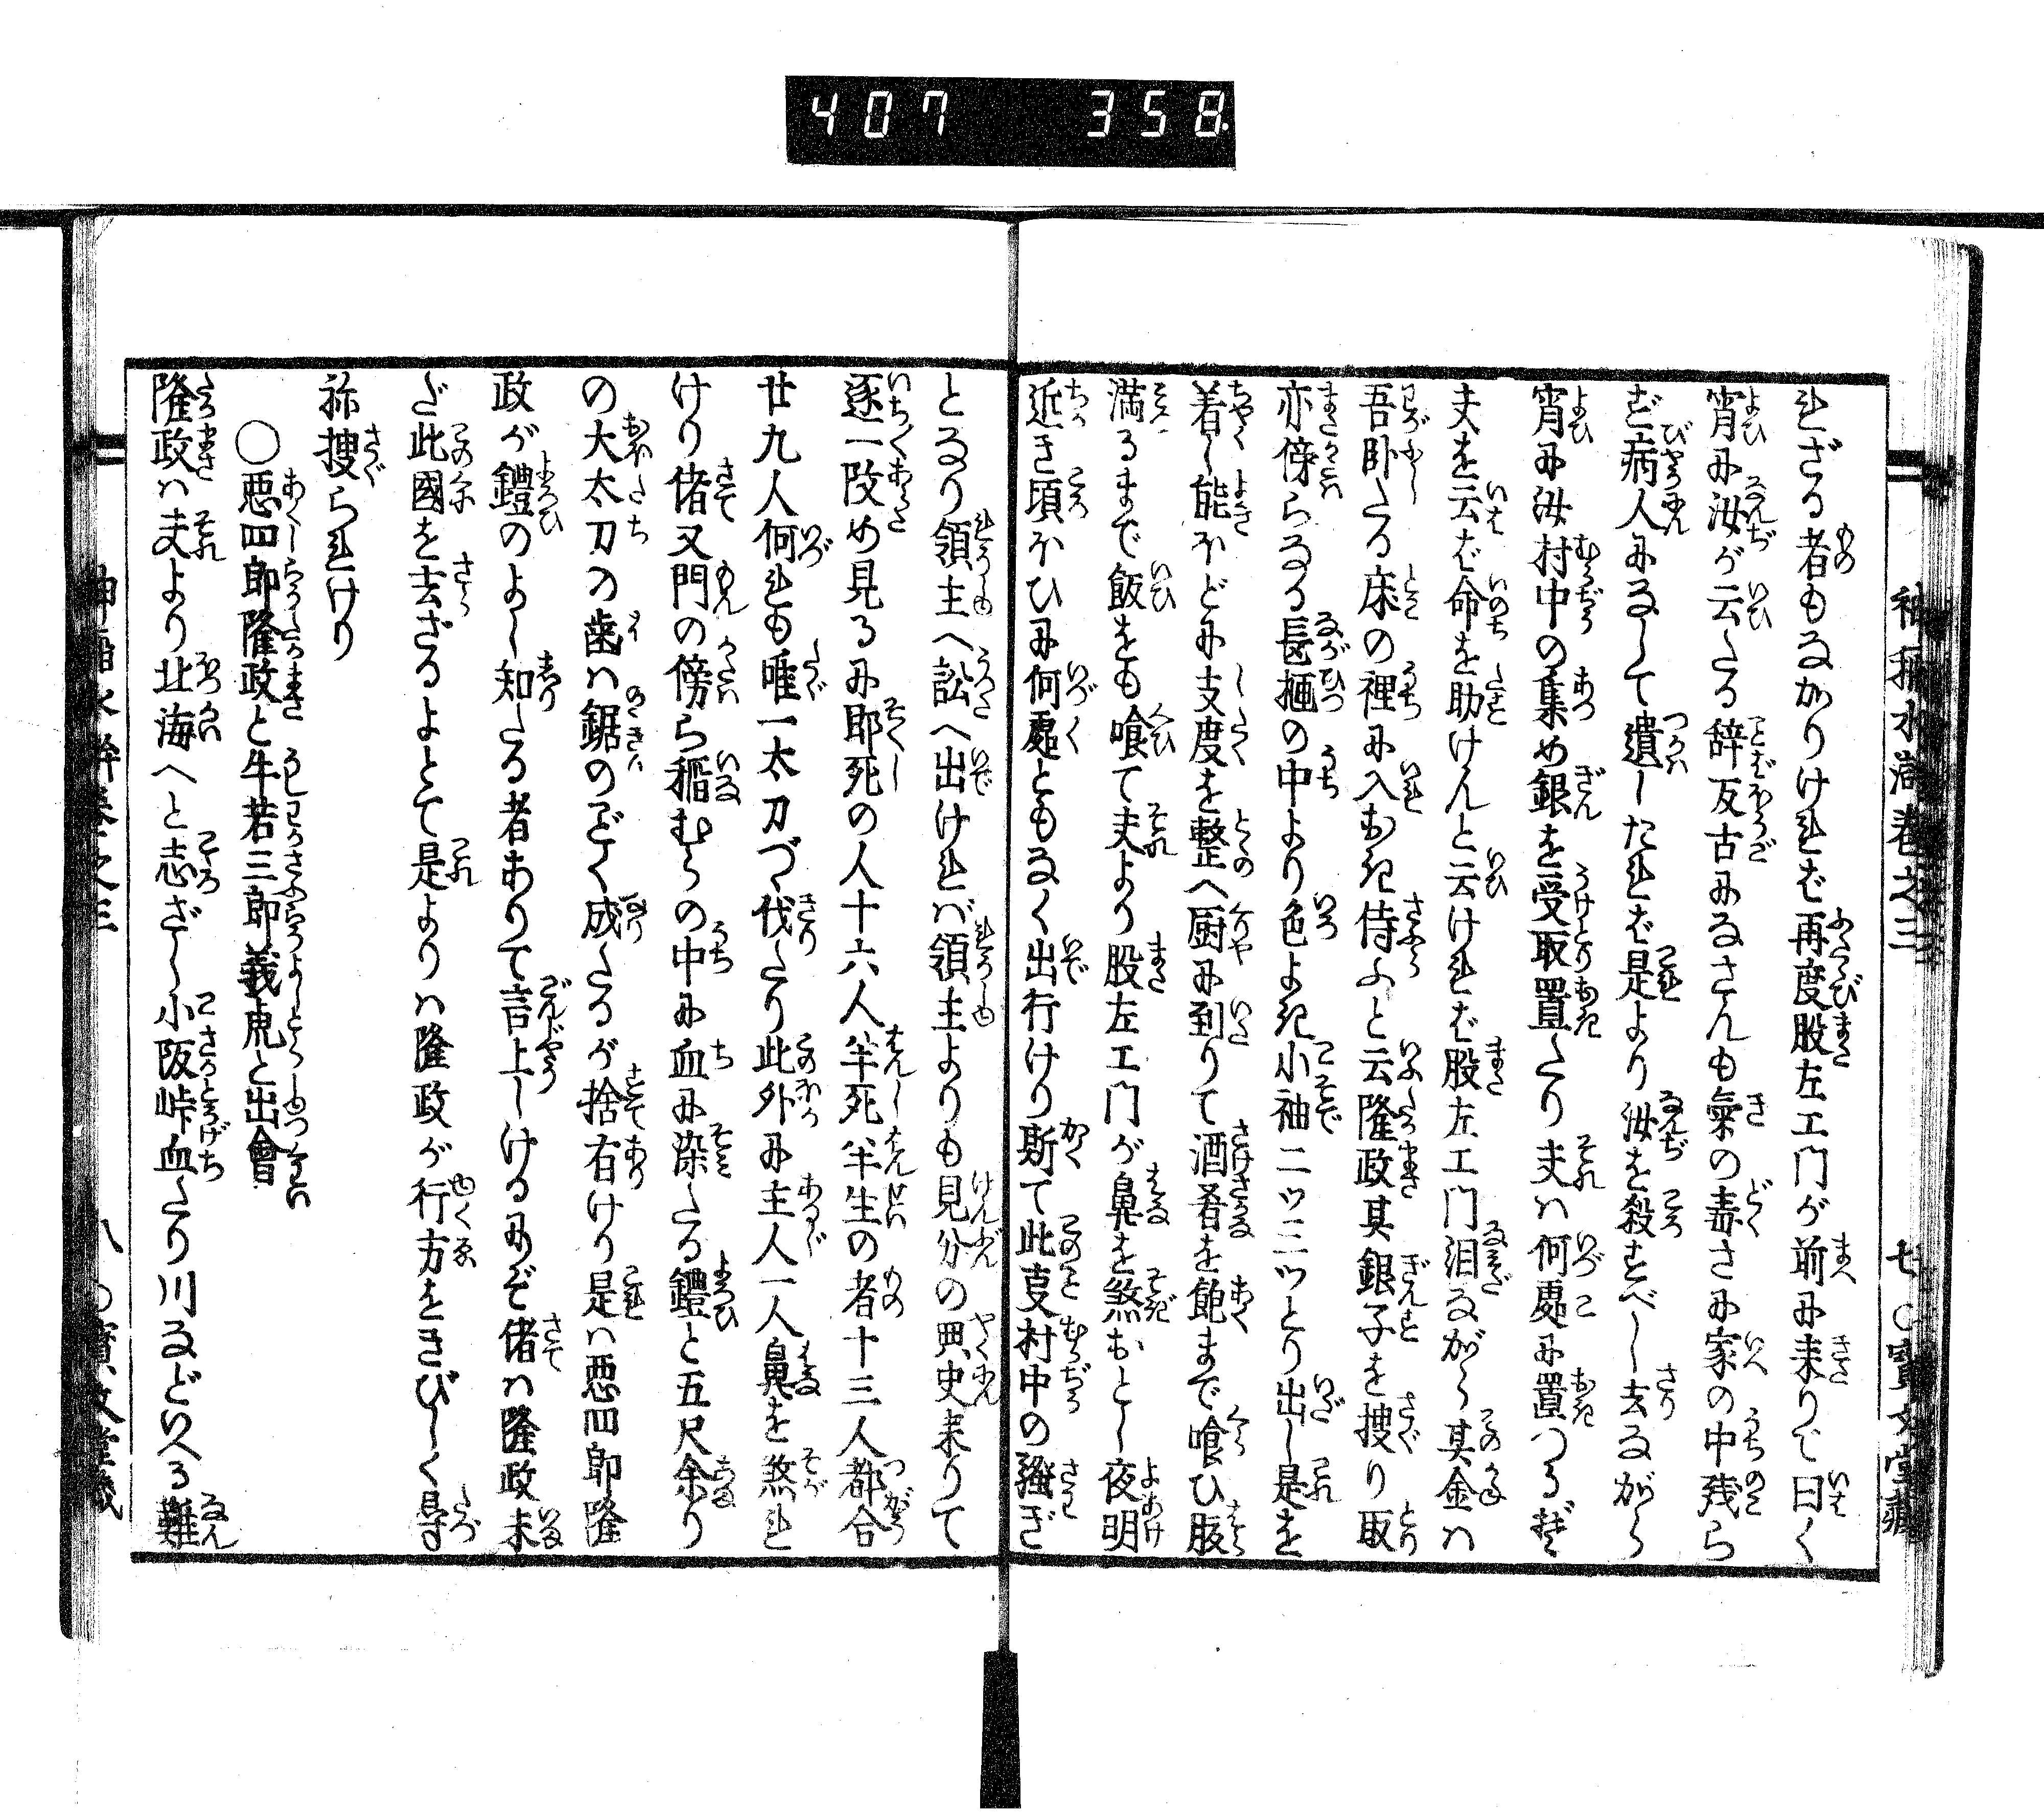 407 358.
れざる者もなかりければ再度股左エ門が前に来りて曰く
宵に汝が云たる辞反古になさんも氣の毒さに家の中残ら
ず病人になして遣したれば是より汝を殺すべし去ながら
宵に汝村中の集め銀を受取置たり夫は何處に置つるぞ
夫を云ば命を助けんと云ければ股左エ門泪ながら其金は
吾卧たる床の裡に入おき侍ふと云隆政其銀子を捜り取
亦傍らなる長持の中より色よき小袖二ツ三ツとり出し是を
着し能ほどに支度を整へ厨に到りて酒肴を飽まで喰ひ腹
満るまで飯をも喰て夫より股左エ門が鼻を煞おとし夜明
近き頃ほひに何處ともなく出行けり斯て此叓村中の騒ぎ
となり領主へ訟へ出ければ領主よりも見分の典史来りて
逐一改め見るに即死の人十六人半死半生の者十三人都合
廿九人何れも唯一太刀づゝ伐たり此外に主人一人鼻を煞れ
けり偖又門の傍ら稲むらの中に血に染たる鎧と五尺余り
の大太刀の歯は鋸のごとく成たるが捨有けり是は悪四郎隆
政が鎧のよし知たる者ありて言上しけるにぞ偖は隆政未
だ此國を去ざるよとて是よりは隆政が行方をきびしく尋
祢捜られけり
〇悪四郎隆政と牛若三郎義虎と出會
隆政は夫より北海へと志ざし小阪峠血たり川などいへる難
七〇寳文堂蔵